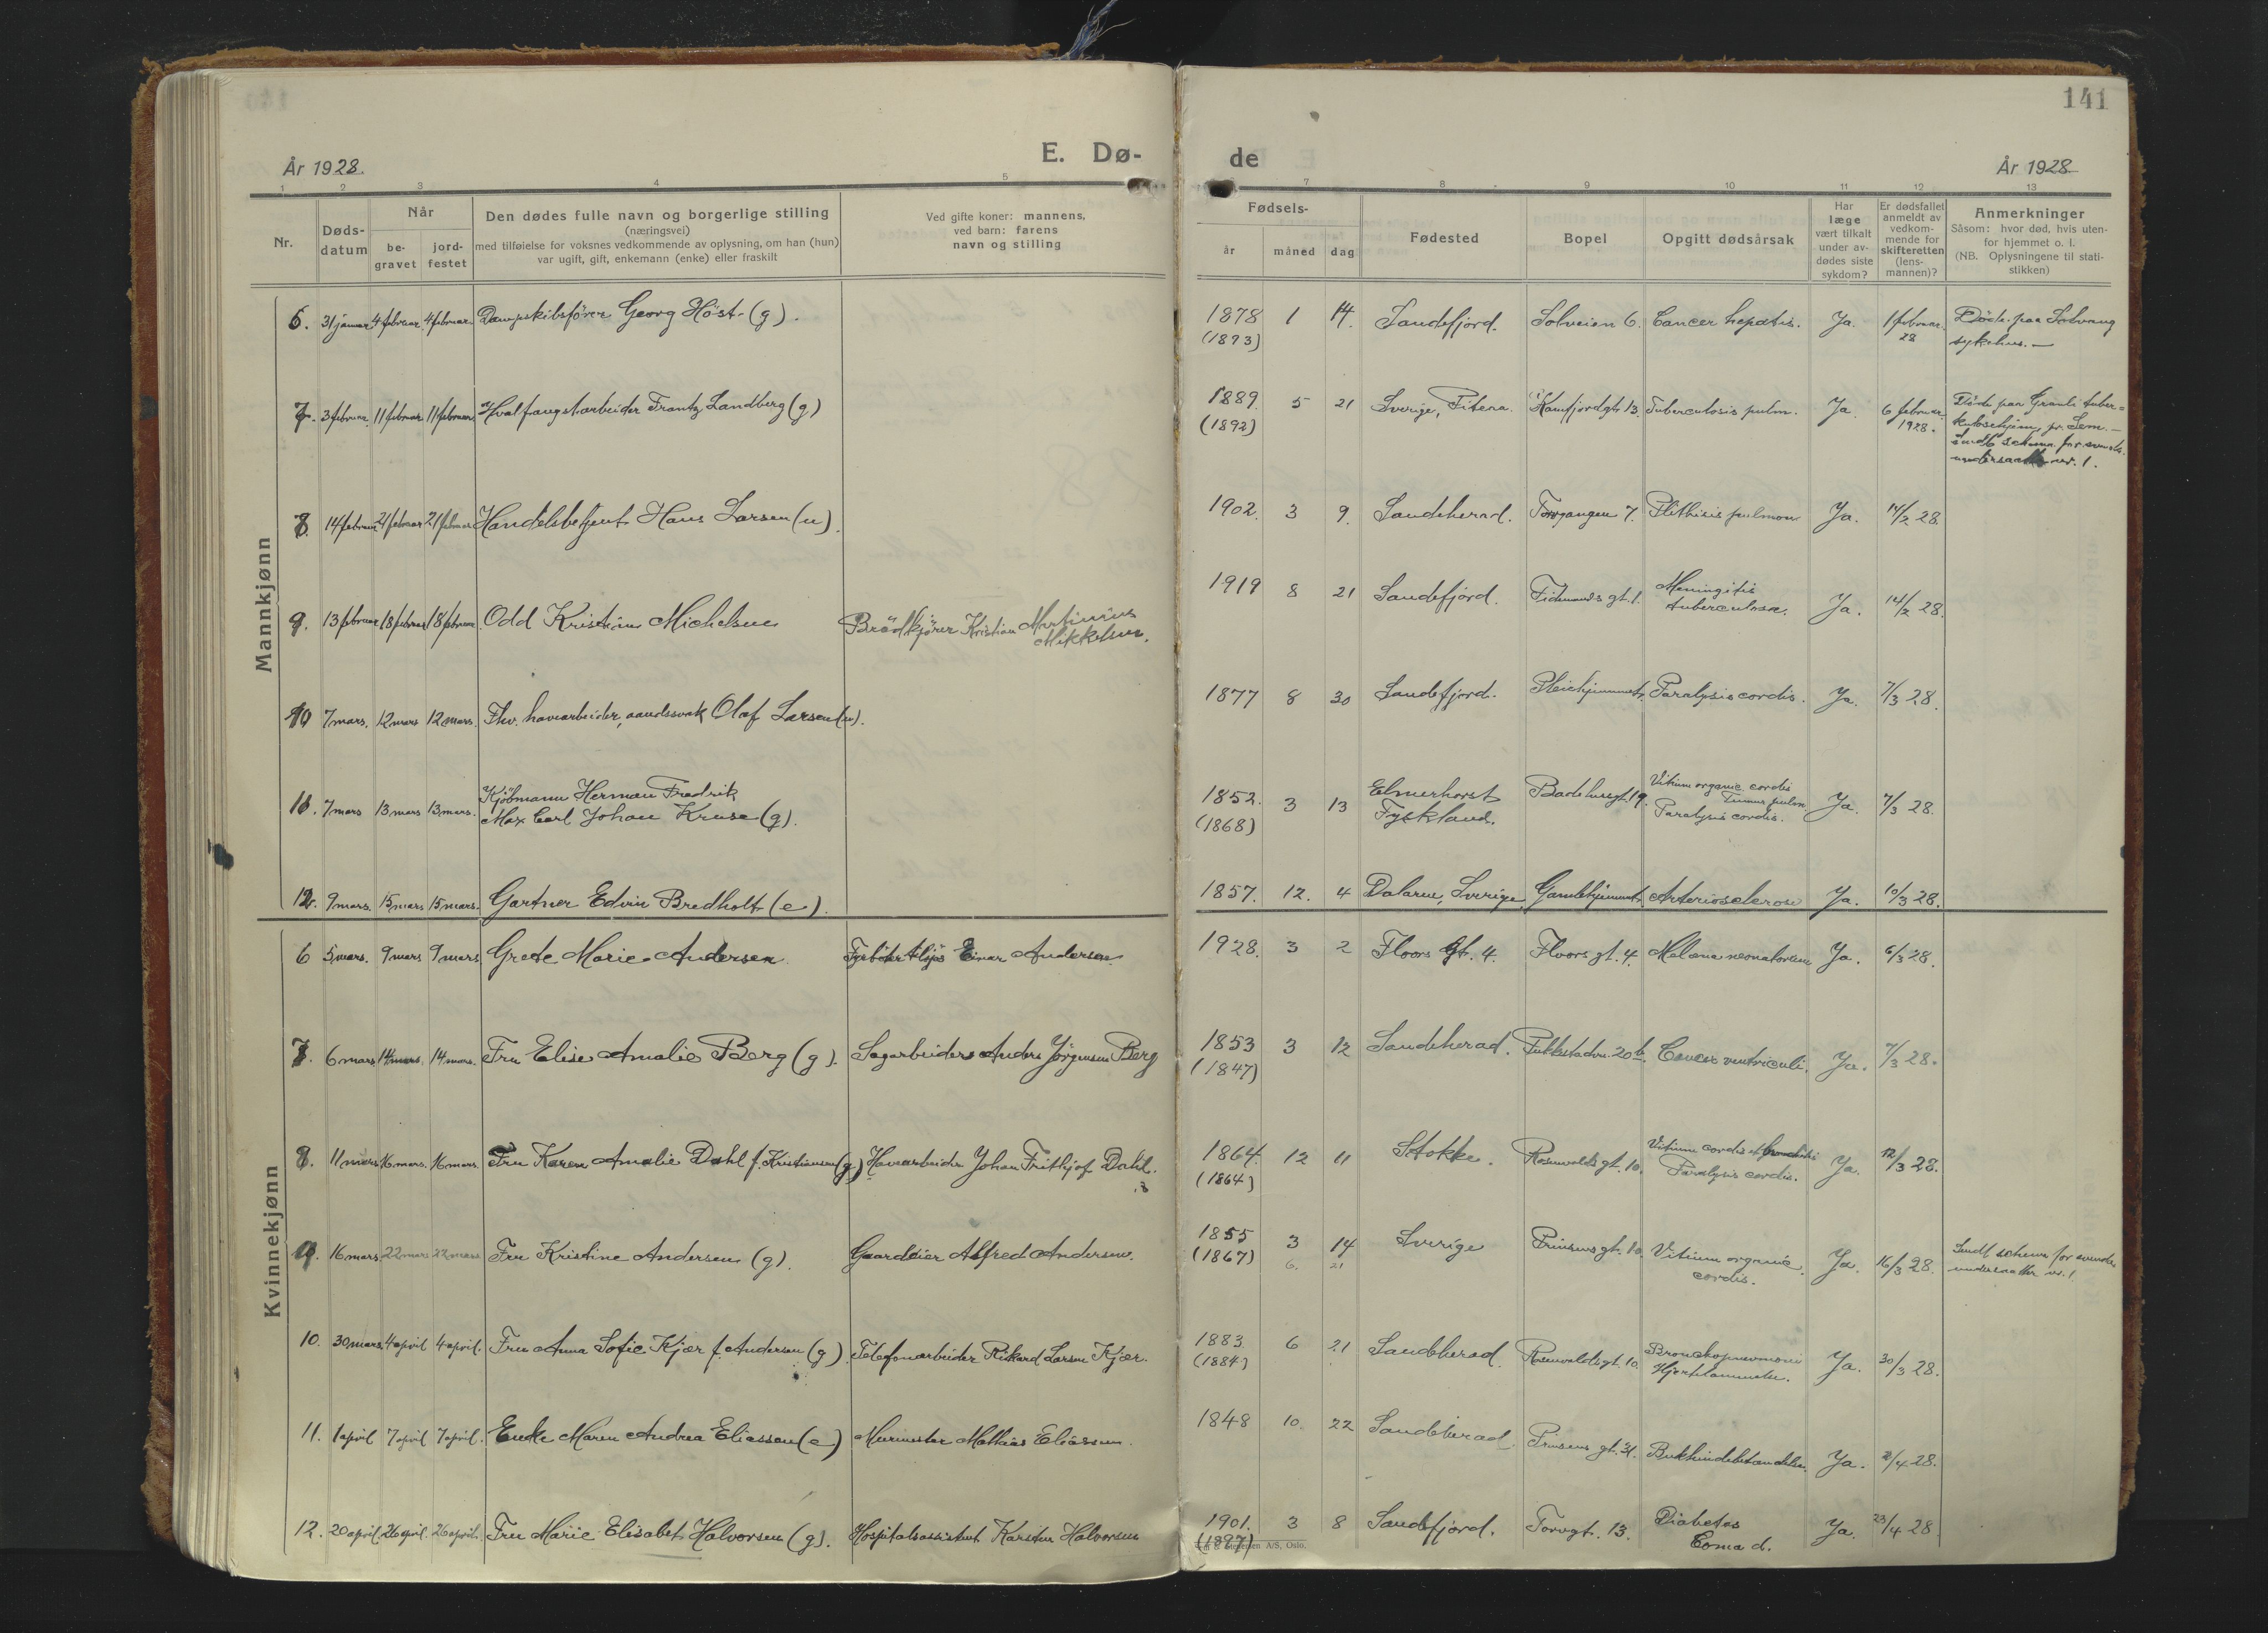 141
År 1928.
E. Dø-
de
År 1928
1 2 3 4 5 7 8 9 10 11 12 13
Nr.
Døds-
datum
Når
be-
gravet
jord-
festet
Den dødes fulle navn og borgerlige stilling
(næringsvei)
med tilføielse for voksnes vedkommende av oplysning, om han (hun)
var ugift, gift, enkemann (enke) eller fraskilt
Ved gifte koner: mannens,
ved barn: farens
navn og stilling
Fødsels-
år måned dag
Fødested
Bopel
Opgitt dødsårsak
Har
læge
vært tilkalt
under av-
dødes siste
sykdom?
Er dødsfallet
anmeldt av
vedkom-
mende for
skifteretten
(lens-
mannen)?
Anmerkninger
Såsom: hvor død, hvis uten-
for hjemmet o. l.
(NB. Oplysningene til stati-
stikken)
Mannkjønn
6. 31 januar 4 februar 4 februar Dampskibsfører Georg Høst (g). 1878 1 14. Sandefjord. Solveien 6. Cancer hepatis. Ja. 1 februar Døde paa Solvang
(1893) 28 sykehus. —
7. 3 februar 11 februar 11 februar Hvalfangstarbeider Frantz Landberg (g) 1889. 5 21 Sverige, Pitena. Kamfjordgt. 13. Tuberculosis pulm. Ja. 6 februar Døde paa Granli tuber=
(1892) 1928. kulosehjem, pr. Sem. —
Sendt schema for svensk
undersaatter nr. 1.
8. 14 februar 21 februar 21 februar Handelsbetjent Hans Larsen (u). 1902. 3 9. Sandeherad. Torvgangen 7. Phthisis pulmon Ja. 14/2 28.
9. 13 februar 18 februar 18 februar Odd Kristian Michelsen Brødkjører Kristian Martinius
Mikkelsen.
1919 8 21 Sandefjord. Tidemands gt. 1. Meningitis
tuberculosa. Ja. 14/2 28.
10 7 mars. 12 mars 12 mars. Fhv. havearbeider, aandssvak Olaf Larsen (u). 1877 8 30 Sandefjord. Pleiehjemmet. Paralysis cordis. Ja. 7/3 28.
11. 7 mars 13 mars 13 mars. Kjøbmann Herman Fredrik
Max Carl Johan Kruse (g).
1852. 3 13 Elmerhorst Badehusgt. 19. Vitium organic. cordis
(1868) Tyskland. Tumor pulm
Paralysis cordis. Ja. 7/3 28.
12. 9 mars. 15 mars 15 mars. Gartner Edvin Bredholt (e). 1857. 12. 4 Dalarne, Sverige. Gamlehjemmet. Arteriosclerose Ja. 10/3 28.
Kvinnekjønn
6 5 mars. 9 mars 9 mars Grete Marie Andersen Fyrbøter Einar Andersen 1928. 3 2 Floors gt. 4. Floors gt. 4. Melæna neonatorum Ja. 6/3 28.
7. 6 mars 14 mars. 14 mars. Fru Elise Amalie Berg (g). Sagarbeider Anders Jørgensen Berg 1853 3 12 Sandeherad. Pukkestadvn. 20 b. Cancer ventriculi. Ja. 7/3 28.
(1847)
8. 11 mars 16 mars. 16 mars. Fru Karen Amalie Dahl f. Kristiansen (g) Havearbeider Johan Frithjof Dahl. 1864. 12 11 Stokke. Rosenvolds gt. 10. Vitium cordis et bronchitis
(1864) Paralysis cordis. Ja. 12/3 28.
9. 16 mars. 22 mars 22 mars Fru Kristine Andersen (g). Gaardeier Alfred Andersen. 1855 3 14 Sverige Prinsensgt. 10. Vitium organic.
(1867) 6. 21 cordis. Ja. 16/3 28. Sendt schema for svenske
undersaatter nr. 1
10. 30 mars. 4 april 4 april. Fru Anna Sofie Kjær f. Andersen (g). Telefonarbeider Rikard Larsen Kjær. 1883. 6 21 Sandeherad. Rosenvoldsgt. 10. Bronchopneumoni
(1884) Hjertelammelse. Ja. 30/3 28.
11. 1 april 7 april 7 april. Enke Maren Andrea Eliassen (e) Murmester Mathias Eliassen. 1848 10. 22 Sandeherad. Prinsens gt. 31. Bukhindebetændelse. Ja. 2/4 28.
12. 20 april 26 april. 26 april. Fru Marie Elisabet Halvorsen (g). Hospitalsassistent Karsten Halvorsen 1901. 3 8 Sandefjord. Torvgt. 13. Diabetes
(1897) Coma d. Ja. 23/4 28.
A/S, Oslo.